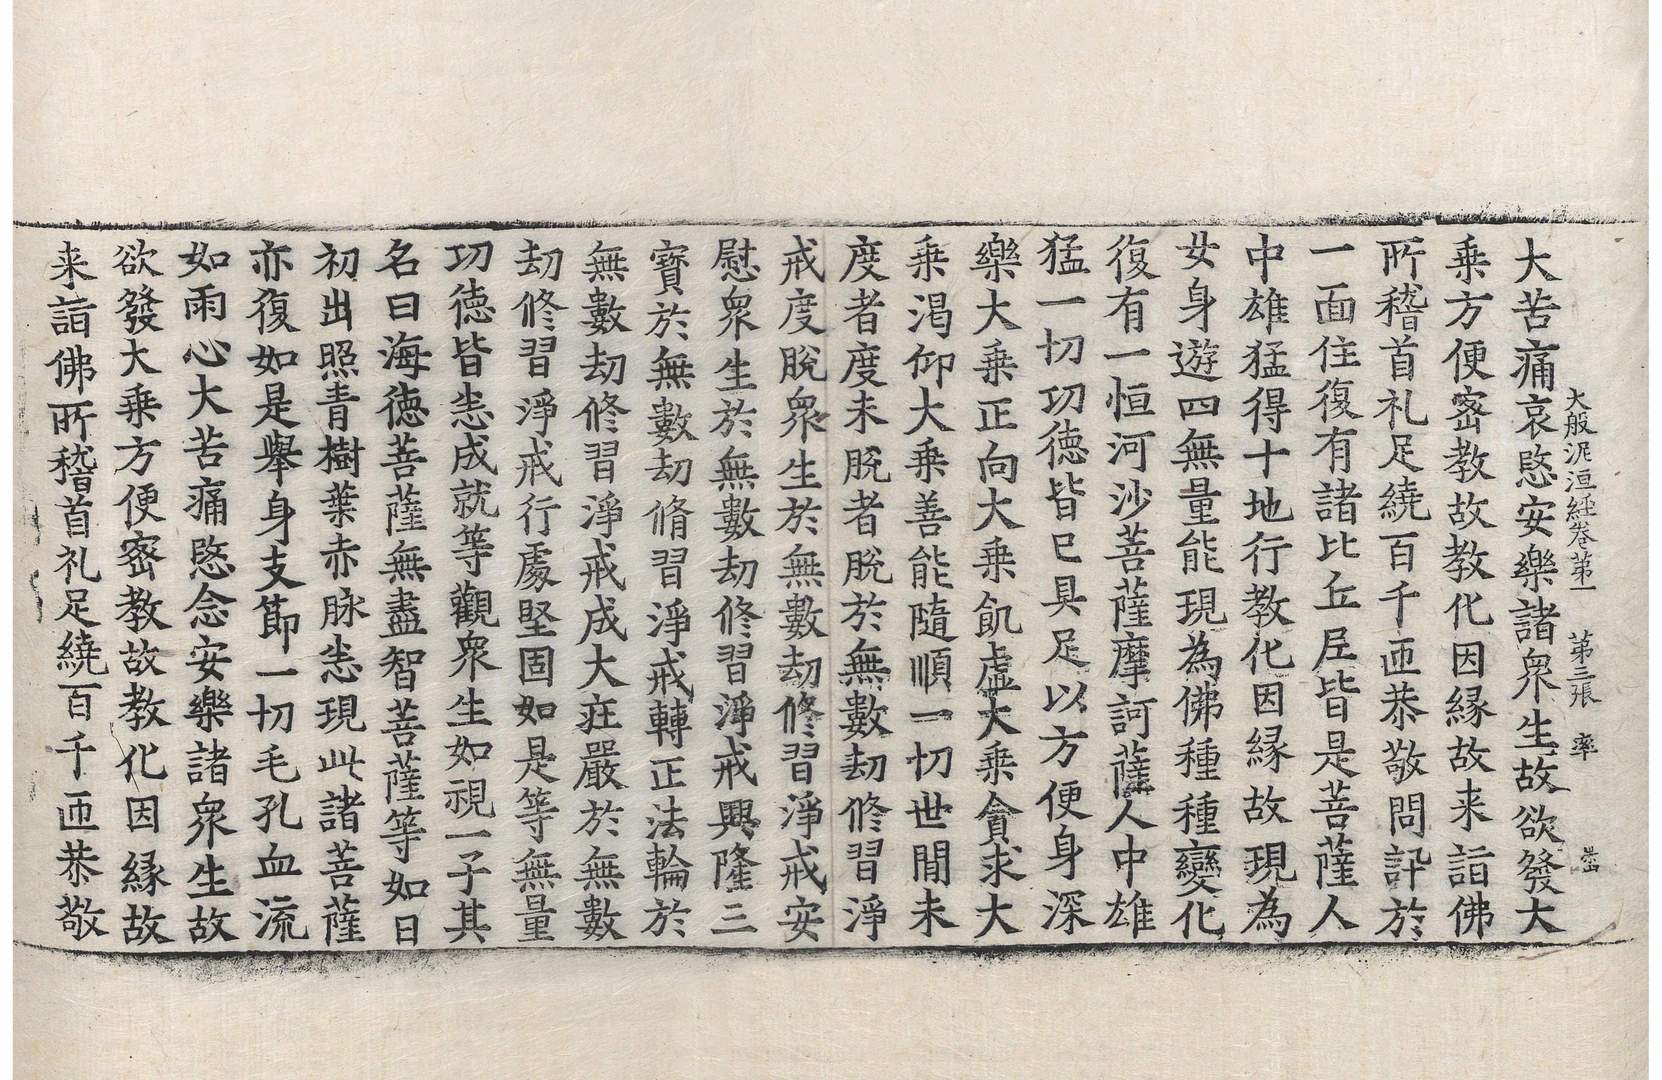 大般泥洹經卷第一 第三張 率
大苦痛哀愍安樂諸衆生故欲發大
乗方便密教故教化因縁故来詣佛
所稽首礼足繞百千迊恭敬問訊於
一面住復有諸比丘尼皆是菩薩人
中雄猛得十地行教化因縁故現為
女身遊四無量能現為佛種種變化
復有一恒河沙菩薩摩訶薩人中雄
猛一切功德皆已具足以方便身深
樂大乗正向大乗飢虛大乗貪求大
乗渴仰大乗善能隨順一切世間未
度者度未脫者脫於無數劫修習淨
戒度脫衆生於無數劫修習淨戒安
慰衆生於無數劫修習淨戒興隆三
寶於無數劫脩習淨戒轉正法輪於
無數劫修習淨戒成大莊嚴於無數
劫修習淨戒行處堅固如是等無量
功德皆悉成就等觀衆生如視一子其
名曰海德菩薩無盡智菩薩等如日
初出照青樹葉赤脉悉現此諸菩薩
亦復如是舉身支節一切毛孔血流
如雨心大苦痛愍念安樂諸衆生故
欲發大乗方便密教故教化因縁故
来詣佛所稽首礼足繞百千迊恭敬